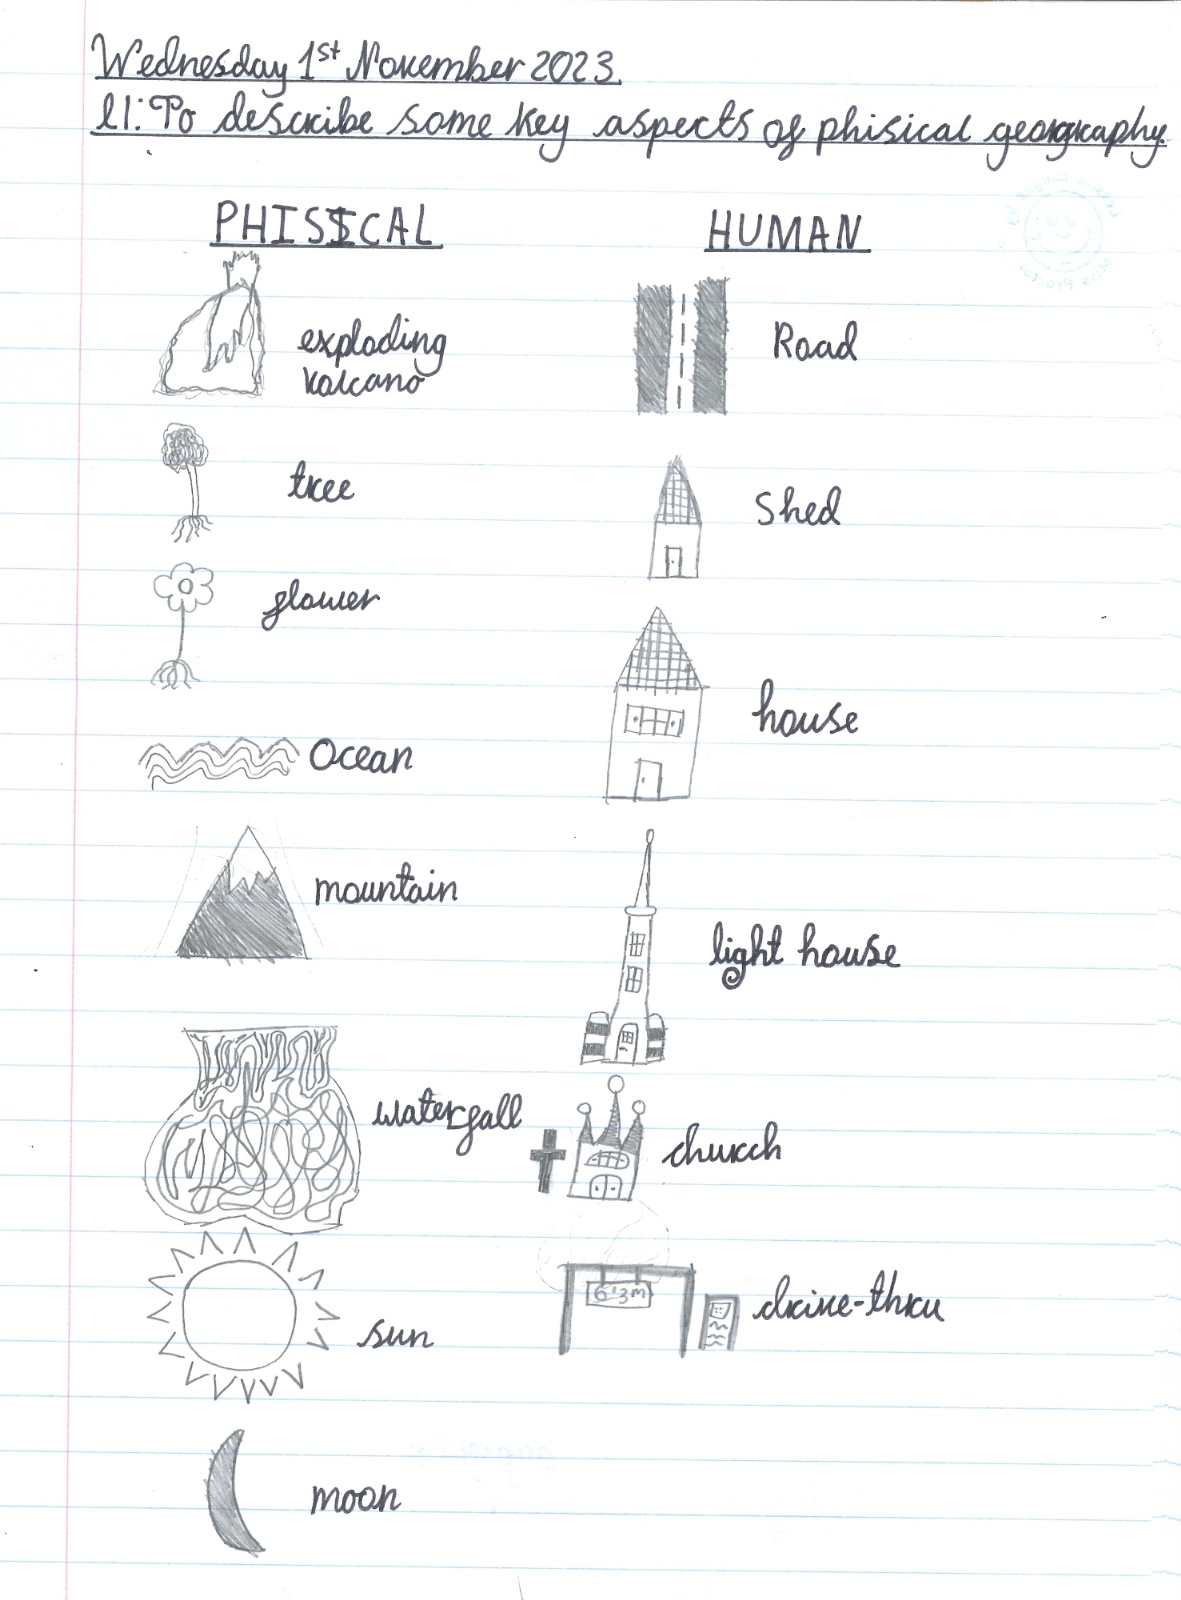 Wednesday 1st November 2023
LI: To describe some key aspects of phisical georgraphy.
PHISICAL
HUMAN
exploding
volcano
Road
tree
Shed
flower
house
Ocean
mountain
light house
waterfall
church
6'3m
drive-thru
sun
moon